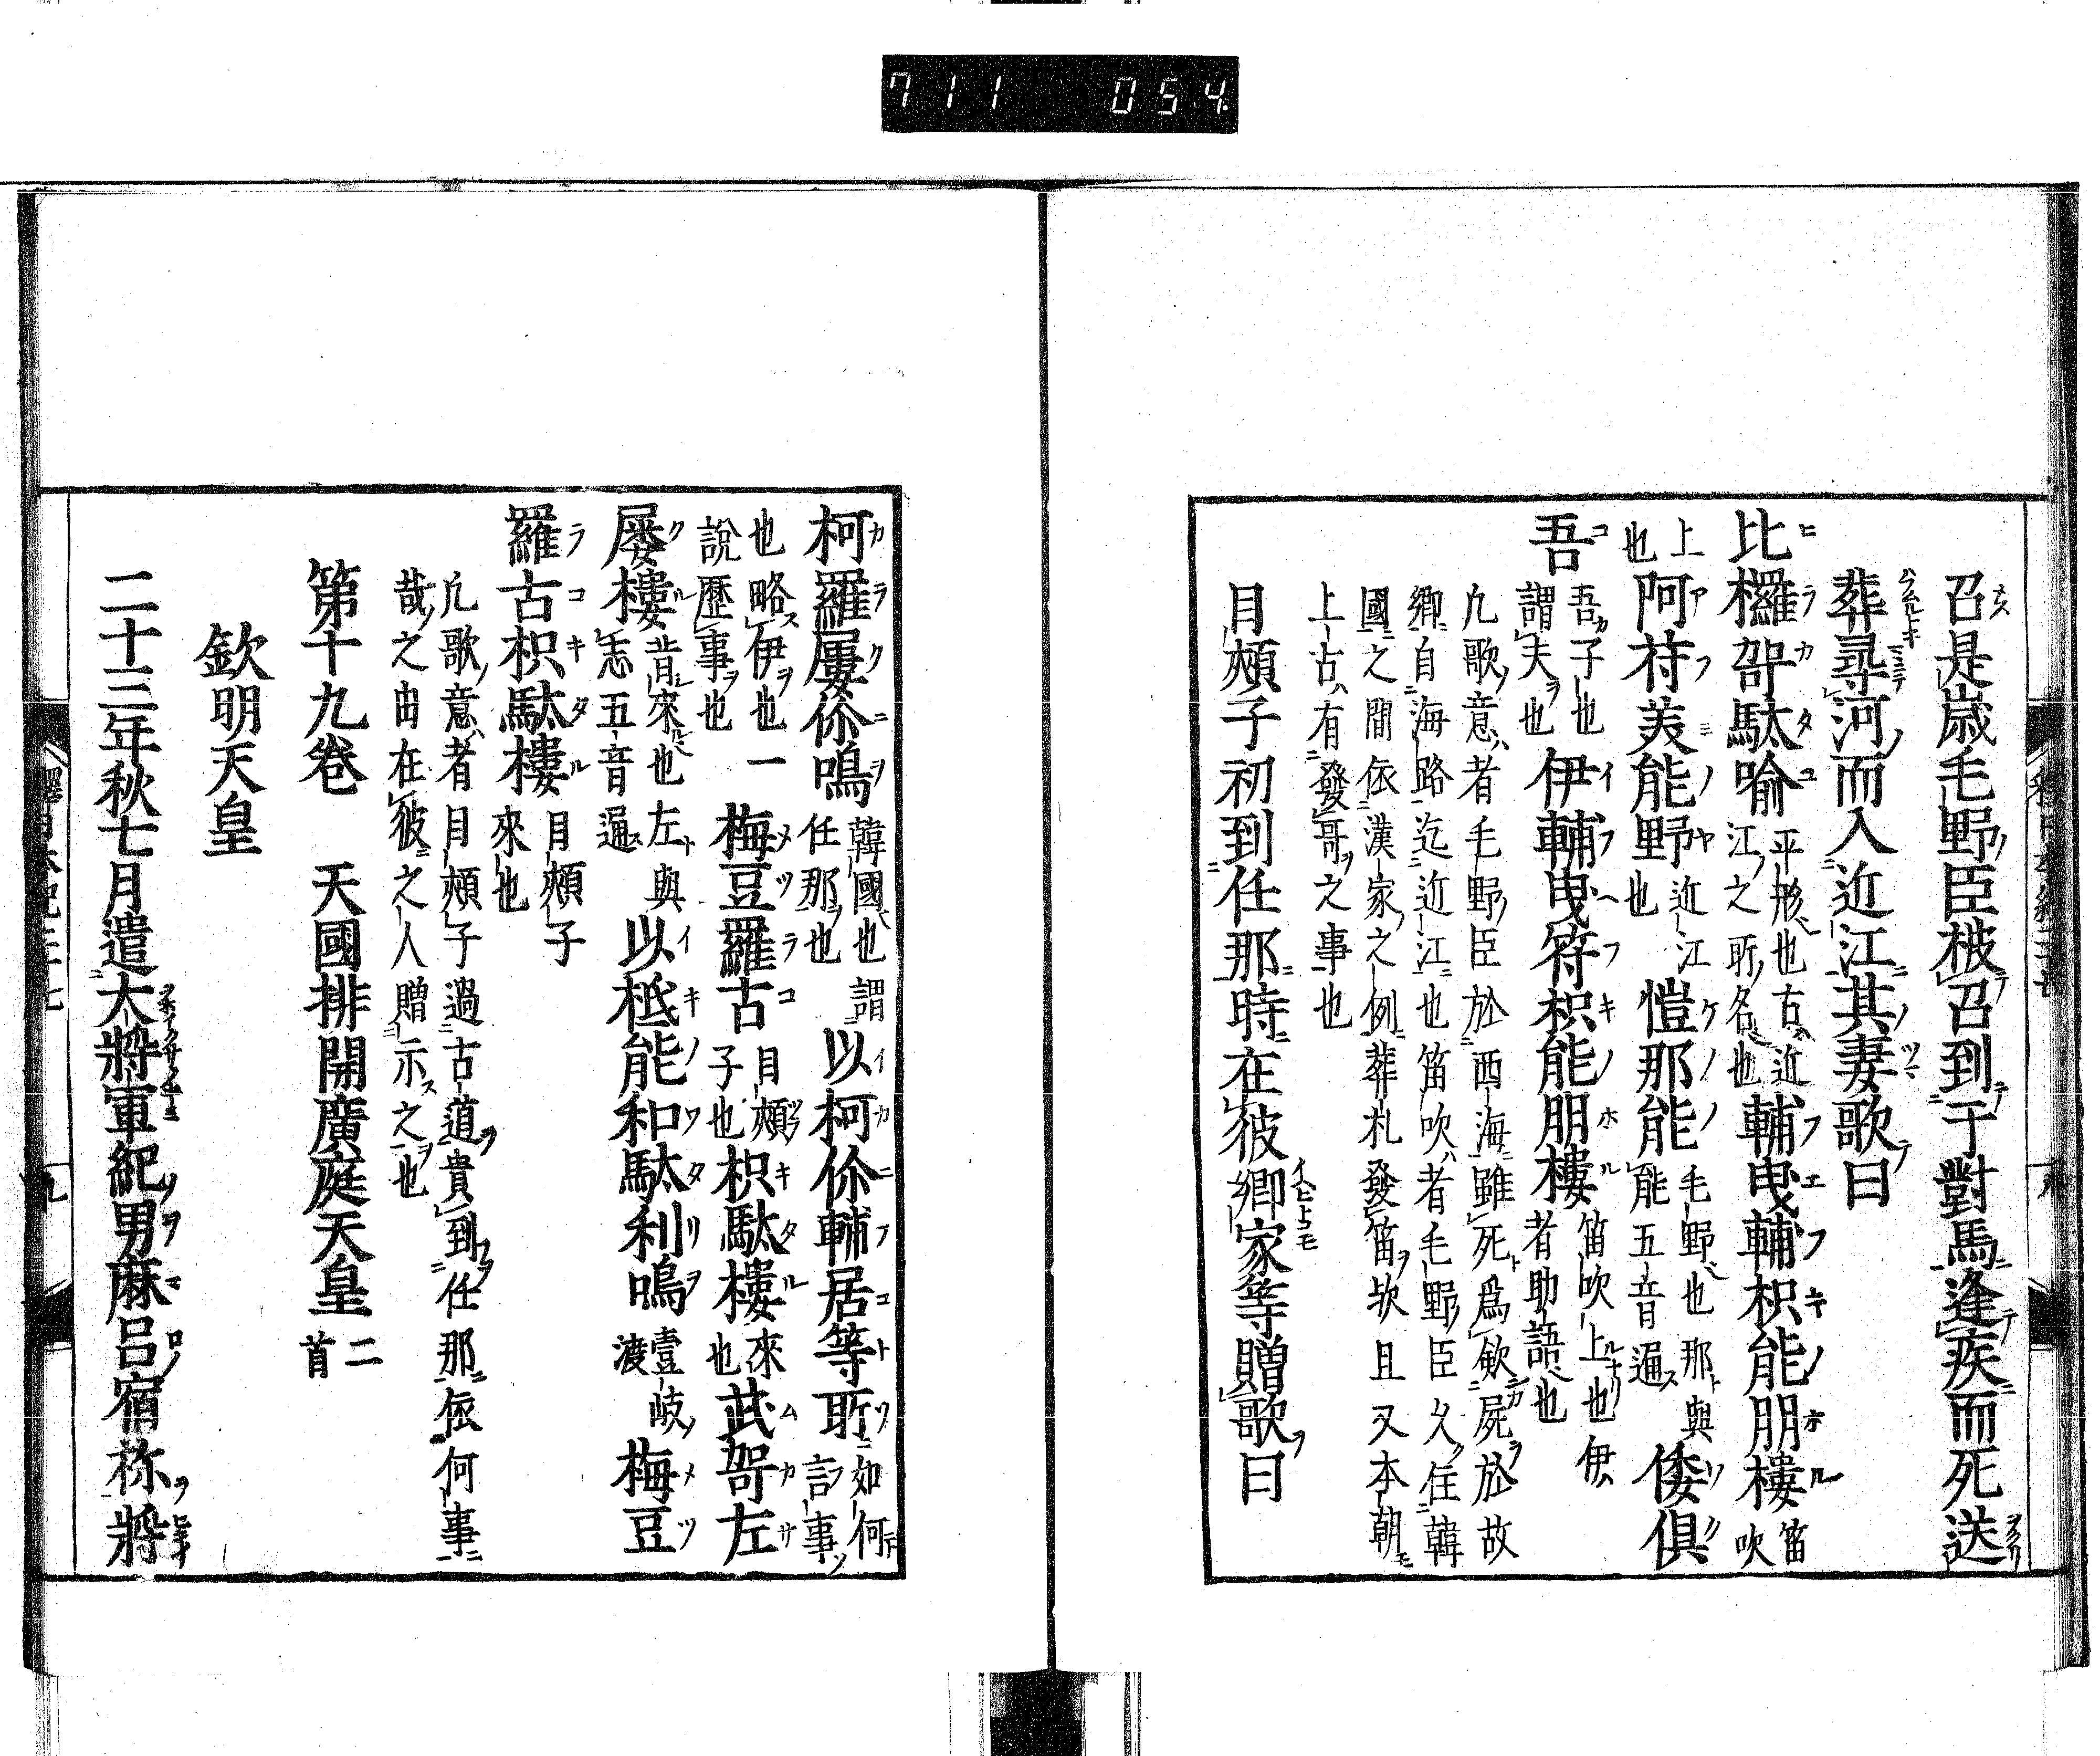 711 054
召是歳毛野臣被召到于對馬逢疾而死送
葬尋河而入近江其妻歌曰
比攞哿駄喩 平形也古近江之所名也 輔曳輔枳能朋樓 笛吹
上也 阿苻美能野 近江也 愷那能 毛野也那與能五音通 倭倶
吾 吾子也謂夫也 伊輔曳符枳能朋樓 笛吹上也伊者助語也
凡歌意者毛野臣於西海雖死爲斂屍於故
郷自海路迄近江也笛吹者毛野臣久住韓
國之間依漢家之例葬礼發笛欤且又本朝
上古有發哥之事也
目頬子初到任那時在彼郷家等贈歌曰
柯羅屨你嗚 韓國也謂任那也 以柯你輔居等所 如何言事
也略伊也一説歴事也 梅豆羅古 目頬子也 枳駄樓 來也 武哿左
屨樓 昔來也左與志五音通 以祗能和駄利嗚 壹岐渡 梅豆
羅古枳駄樓 目頬子來也
凡歌意者目頬子過古道貴到任那依何事
哉之由在彼之人贈示之也
第十九卷 天國排開廣庭天皇 二首
欽明天皇
二十三年秋七月遣大將軍紀男麻呂宿祢將